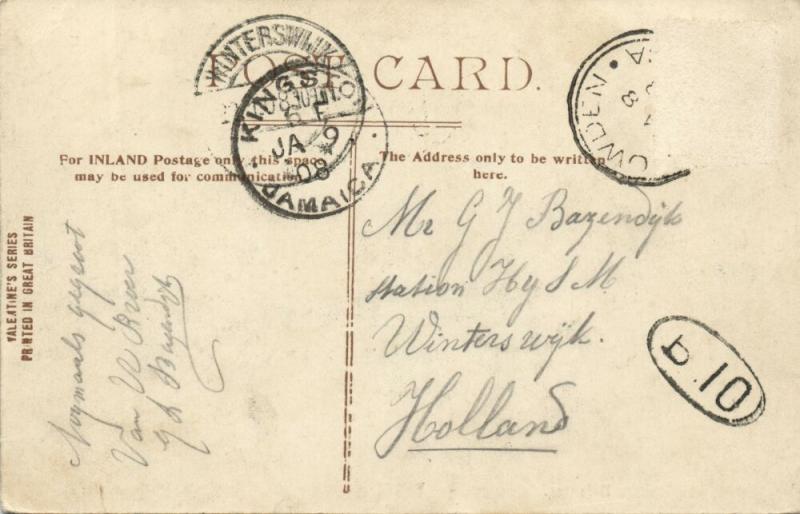 POST CARD.
WINTERSWIJK
KINGSTON
JA 9
08
JAMAICA
OWDEN
For INLAND Postage only this space
may be used for communication.
The Address only to be written
here.
VALENTINE'S SERIES
PRINTED IN GREAT BRITAIN
Nogmaals gegroet
Van
Mr G J Bazendijk
Station H y S M
Winterswijk.
Holland